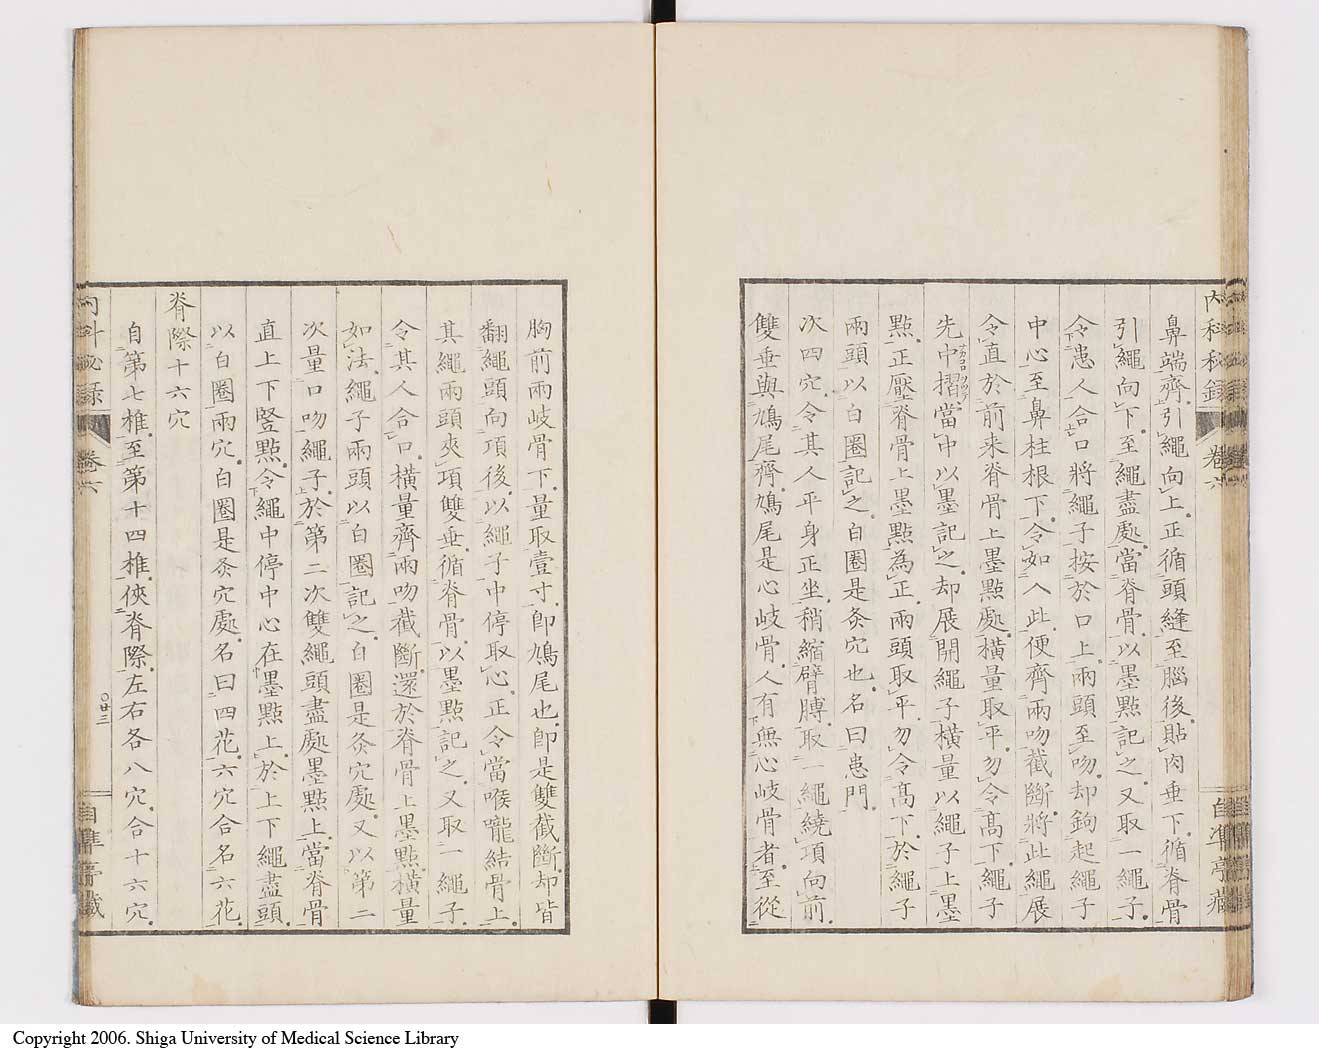 内科秘録 卷六 自準亭藏
鼻端齊引繩向上正循頭縫至腦後貼肉垂下循脊骨
引繩向下至繩盡處當脊骨以墨點記之又取一繩子
令患人合口將繩子按於口上兩頭至吻却鉤起繩子
中心至鼻柱根下令如人此便齊兩吻截斷將此繩展
令直於前来脊骨上墨點處橫量取平勿令高下繩子
先中摺當中以墨記之却展開繩子橫量以繩子上墨
點正壓脊骨上墨點為正兩頭取平勿令高下於繩子
兩頭以白圈記之白圈是灸穴也名曰患門
次四穴令其人平身正坐稍縮臂膊取一繩繞項向前
雙垂與鳩尾齊鳩尾是心岐骨人有無心岐骨者至從
胸前兩岐骨下量取壹寸即鳩尾也即是雙截斷却背
翻繩頭向項後以繩子中停取心正令當喉嚨結骨上
其繩兩頭夾項雙垂循脊骨以墨點記之又取一繩子
令其人合口橫量齊兩吻截斷還於脊骨上墨點橫量
如法繩子兩頭以白圈記之白圈是灸穴處又以第二
次量口吻繩子於第二次雙繩頭盡處墨點上當脊骨
直上下竪點令繩中停中心在墨點上於上下繩盡頭
以白圈兩穴白圈是灸穴處名曰四花六穴合名六花
脊際十六穴
自第七椎至第十四椎俠脊際左右各八穴合十六穴
内科秘録 卷六 〇廿三 自準亭藏
Copyright 2006. Shiga University of Medical Science Library